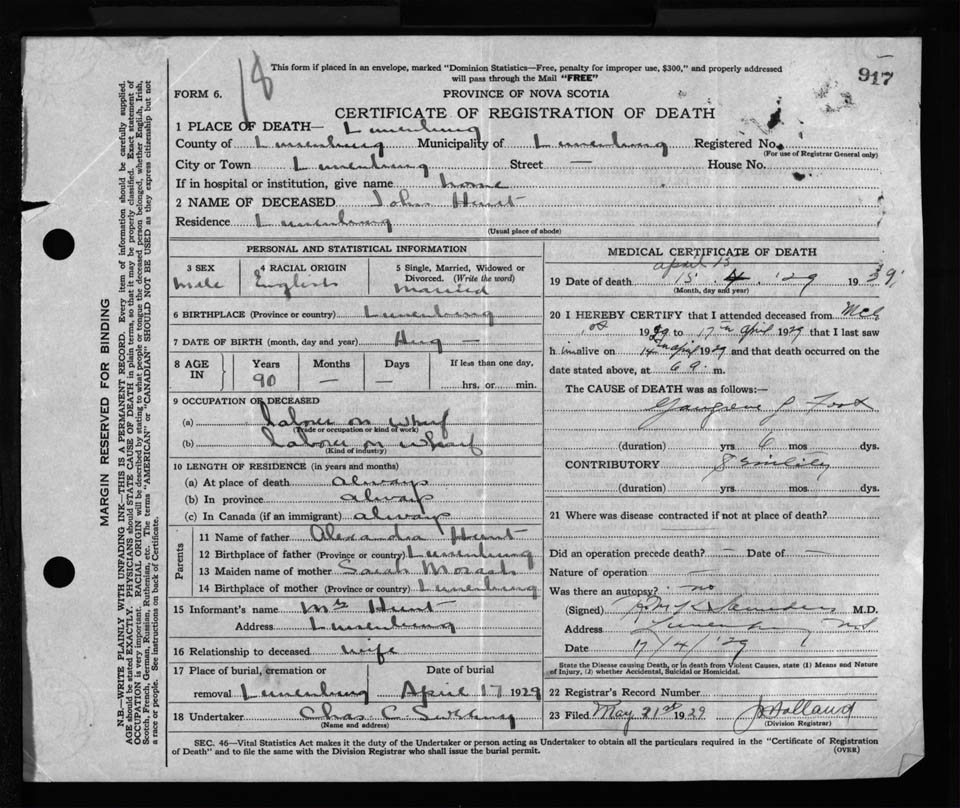 18
917
This form if placed in an envelope, marked "Dominion Statistics—Free, penalty for improper use, $300," and properly addressed
will pass through the Mail "FREE"
FORM 6.
PROVINCE OF NOVA SCOTIA
CERTIFICATE OF REGISTRATION OF DEATH
1 PLACE OF DEATH— Lunenburg
County of Lunenburg Municipality of Lunenburg Registered No.
(For use of Registrar General only)
City or Town Lunenburg Street — House No.
If in hospital or institution, give name home
2 NAME OF DECEASED John Hunt
Residence Lunenburg
(Usual place of abode)
PERSONAL AND STATISTICAL INFORMATION
3 SEX 4 RACIAL ORIGIN 5 Single, Married, Widowed or
Divorced. (Write the word)
Male English Married
6 BIRTHPLACE (Province or country) Lunenburg
7 DATE OF BIRTH (month, day and year) Aug —
8 AGE IN Years Months Days If less than one day,
90 — — hrs. or min.
9 OCCUPATION OF DECEASED
(a) labourer on wharf
(Trade or occupation or kind of work)
(b) labourer on wharf
(Kind of industry)
10 LENGTH OF RESIDENCE (in years and months)
(a) At place of death always
(b) In province always
(c) In Canada (if an immigrant) always
Parents
11 Name of father Hunt
12 Birthplace of father (Province or country) Lunenburg
13 Maiden name of mother Sarah Morash
14 Birthplace of mother (Province or country) Lunenburg
15 Informant's name Mrs Hunt
Address Lunenburg
16 Relationship to deceased wife
17 Place of burial, cremation or Date of burial
removal Lunenburg April 17 1929
18 Undertaker Chas C.
(Name and address)
MEDICAL CERTIFICATE OF DEATH
April 15
19 Date of death 15 4 '29 19
(Month, day and year)
20 I HEREBY CERTIFY that I attended deceased from Mch
1929 to 17th April 1929 that I last saw
him alive on 14th April 1929 and that death occurred on the
date stated above, at 6 a. m.
The CAUSE of DEATH was as follows:—
Gangrene of Foot
(duration) yrs 6 mos dys.
CONTRIBUTORY Senility
(duration) yrs. mos. dys.
21 Where was disease contracted if not at place of death?
Did an operation precede death? — Date of —
Nature of operation —
Was there an autopsy? no
(Signed) Saunders M.D.
Address Lunenburg NS
Date 17/4/'29
State the Disease causing Death, or in death from Violent Causes, state (1) Means and Nature
of Injury, (2) whether Accidental, Suicidal or Homicidal.
22 Registrar's Record Number
23 Filed May 31st 1929 Holland
(Division Registrar)
SEC. 46—Vital Statistics Act makes it the duty of the Undertaker or person acting as Undertaker to obtain all the particulars required in the "Certificate of Registration
of Death" and to file the same with the Division Registrar who shall issue the burial permit. (OVER)
MARGIN RESERVED FOR BINDING
N.B.—WRITE PLAINLY WITH UNFADING INK—THIS IS A PERMANENT RECORD. Every item of information should be carefully supplied.
AGE should be stated EXACTLY. PHYSICIANS should STATE CAUSE OF DEATH in plain terms, so that it may be properly classified. Exact statement of
OCCUPATION is very important. RACIAL ORIGIN will be described by stating to what people or tongue the deceased person belonged, whether English, Irish,
Scotch, French, German, Russian, Ruthenian, etc. The terms "AMERICAN" or "CANADIAN" SHOULD NOT BE USED as they express citizenship but not
a race or people. See instructions on back of Certificate.